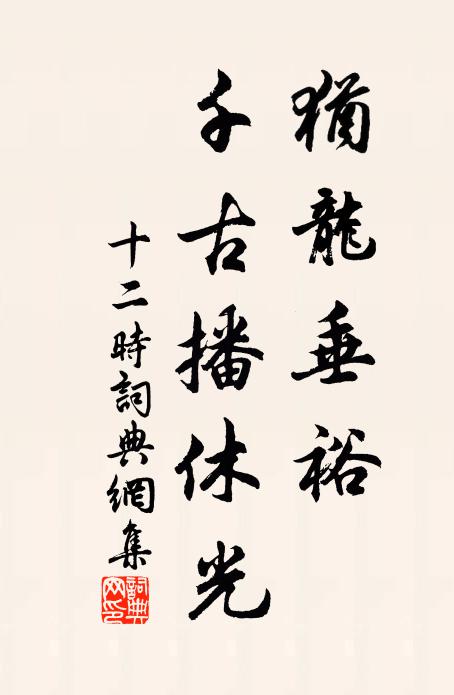 猶龍垂裕
千古播休光
十二時詞典網集
詞典網印